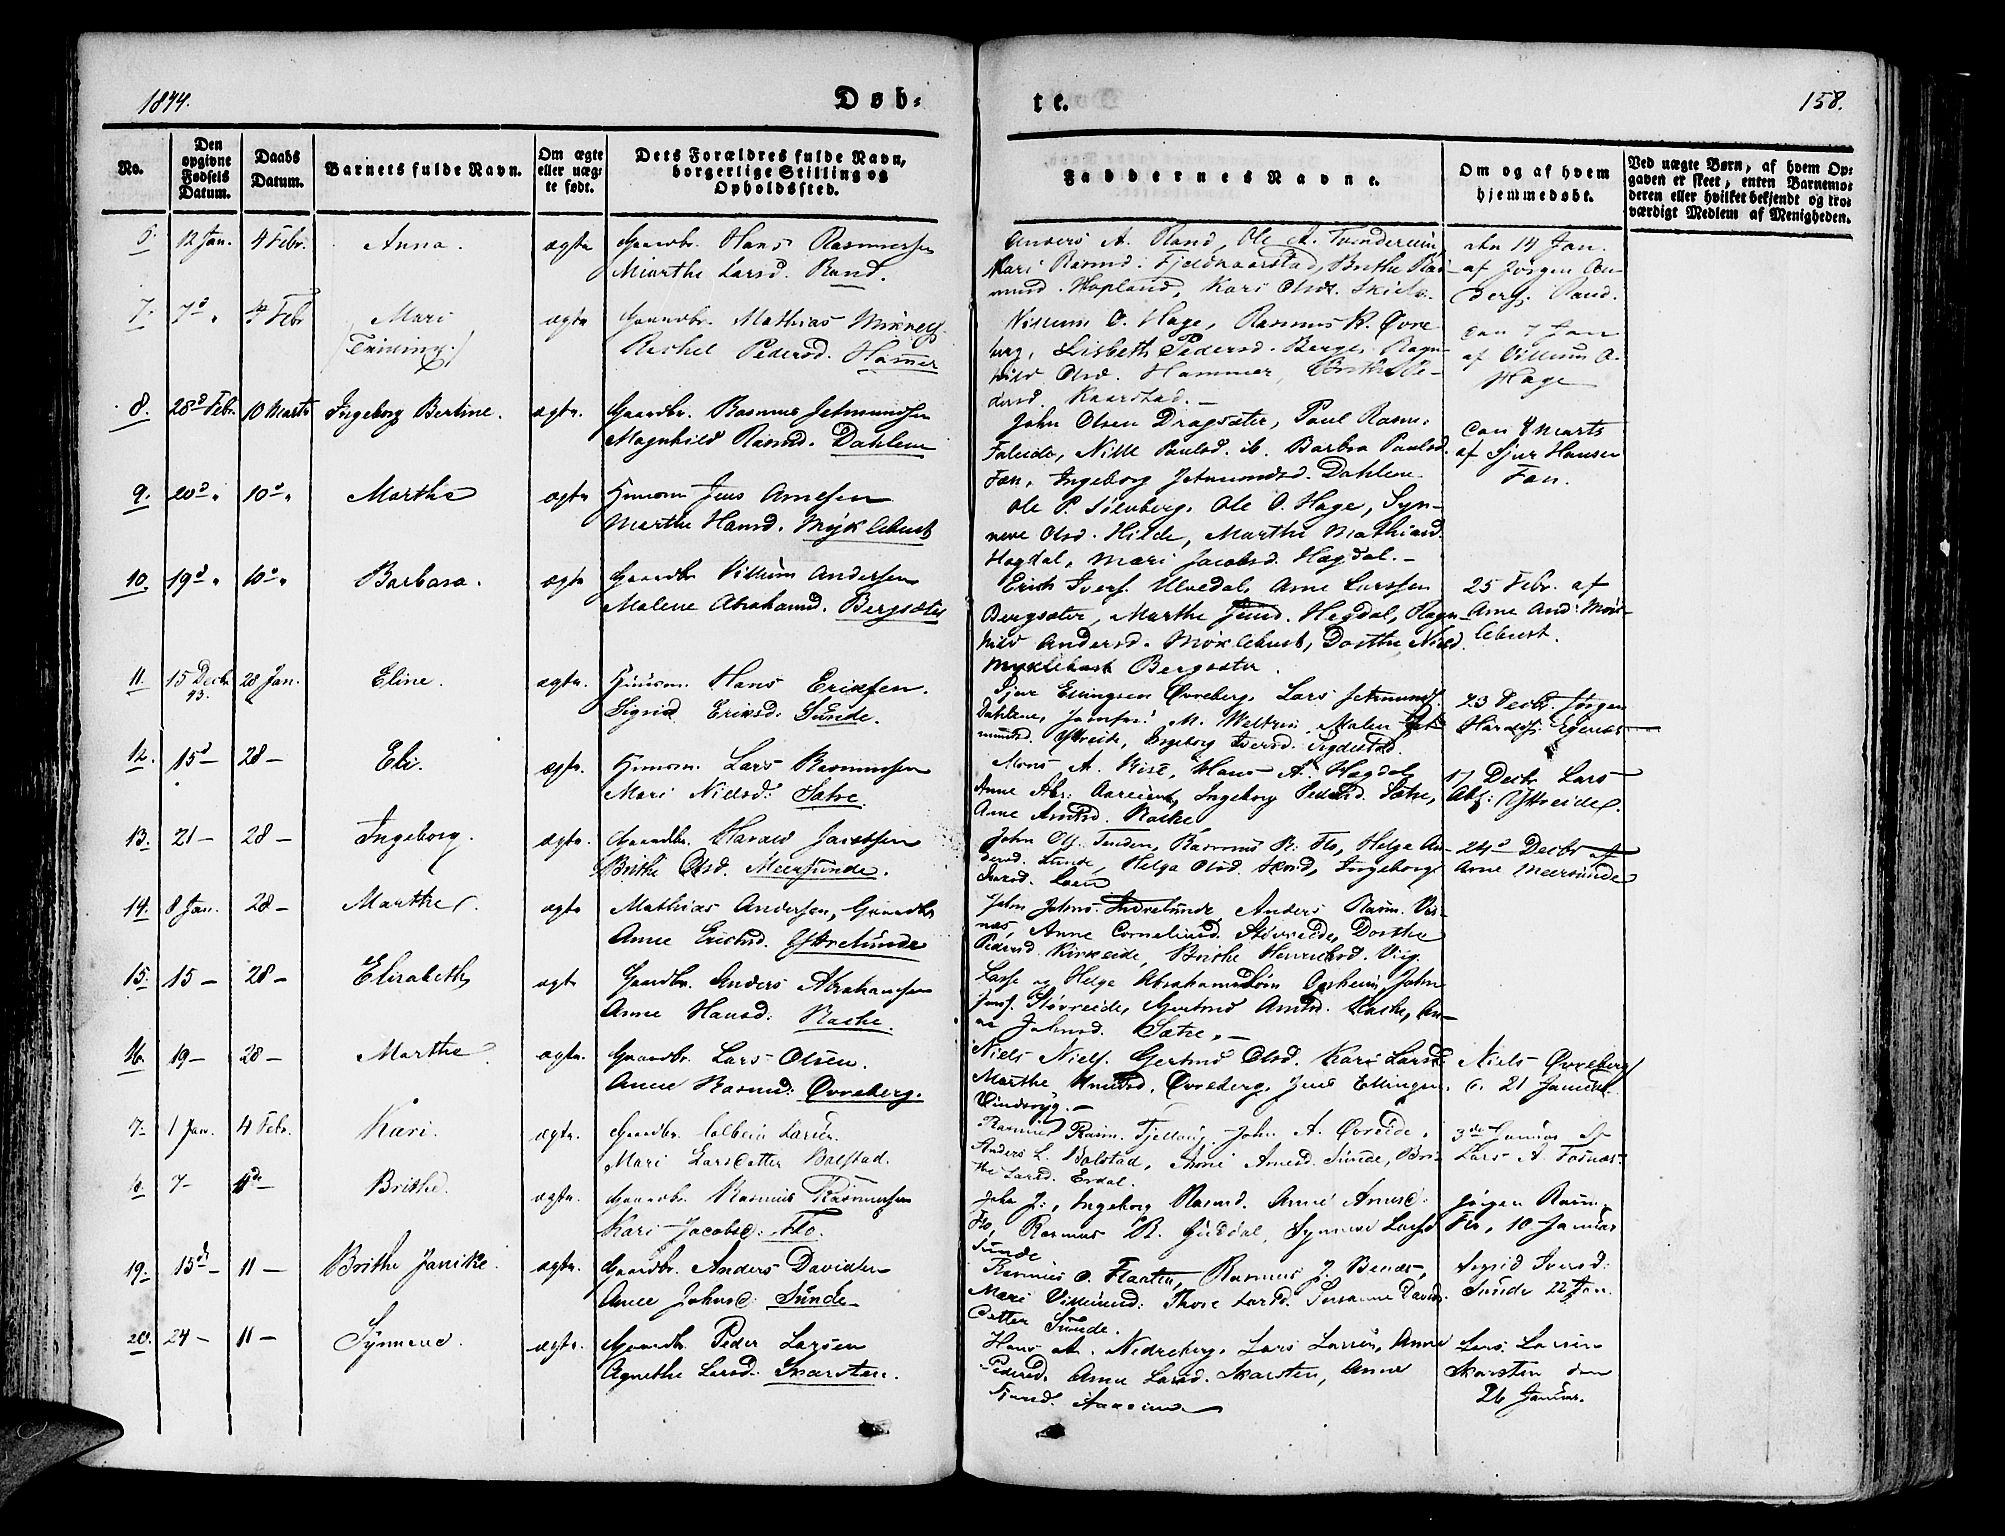 1844.
Døb-
te.
158.
No.
Den opgivne Fødsels Datum.
Daabs Datum.
Barnets fulde Navn.
Om ægte eller uægte født.
Dets Forældres fulde Navn, borgerlige Stilling og Opholdssted.
Faddernes Navne.
Om og af hvem hjemmedøbt.
Ved uægte Børn, af hvem Opgaven er skeet, enten Barnemoderen eller hvilket bekjendt og troværdigt Medlem af Menigheden.
6. 12 Jan. 4 Febr. Anna. ægte Gaardbr. Hans Rasmussen
Marthe Larsd. Rand.
Anders A. Rand, Ole A.
Mari Rasmd. Brithe Ras-
musd. Hopland, Kari Olsdt.
14 Jan.
af Jørgen An-
ders. Rand.
7. 7d " 4 Febr Mari ægte Gaardbr. Mathias
Rachel Pedersd. Hammer
Villum O. Hage, Rasmus R. Øvre-
berg, Lisbeth Pedersd. Berge, Ragn-
hild Olsd. Hammer,
Kaarstad.
7 Jan
af Villum O.
Hage
8. 28d Febr. 10 Marts Ingeborg Bertine. ægte. Gaardbr. Rasmus Jetmundsen
Magnhild Rasmd. Dahlene
John Olsen Dragsæter, Paul Rasm:
Faleide, Nille Paulsd. ib. Barbra Paulsd.
Fæn, Ingeborg Jetmundsd. Dahlene.
Marts
af Sjur Hansen
Fæn.
9. 20d " 10d " Marthe ægte Huusm Jens Arnesen
Marthe Hansd. Myklebust
Ole P. Sølvberg, Ole O. Hage, Syn-
neve Olsd. Hilde, Marthe Mathiasd.
Hogdal, Mari Jacobsd. Hægdal.
10. 19d " 10d " Barbara. ægte Gaardbr Villum Andersen
Malene Abrahamd. Bergsæter
Erich Ivers. Ulvedal, Arne Larssen
Bergsæter, Marthe Hegdal, Ragn-
hild Andersd. Møklebust, Dorthe Nielsd.
Myklebust Bergsæter.
25 Febr. af
Arne And: Møk-
lebust.
11. 15 Decbr 43. 28 Jan. Eline. ægte. Huusm. Hans Eriksen.
Sigrid Eriksd. Sunde.
Sjur Ellingsen Øvreberg, Lars Jetmunds.
Dahlene, Jomfru M. Welten, Malene Jet-
mundsd. Yttreide, Ingeborg Iversd.
23 Decbr. Jørgen
Haralds. Egenæs
12. 15d – 28 – Eli. ægte. Huusm. Lars Rasmussen
Mari Nielsd. Sætre
Mons A. Hans A. Hægdal
Anne Abr: Ingeborg Pedersd. Sætre,
Anne Arntsd. Raske
17 Decbr Lars
Yttreide.
13. 21 – 28 – Ingeborg. ægte. Gaardbr. Harald Jacobsen
Brithe Olsd. Meersunde.
John Ols. Tenden, Rasmus R. Flo, Helga An-
dersd. Sunde, Helga Olsd. Ingeborg
Iversd. Loen
24d Decbr af
Arne Meersunde
14. 8 Jan. 28 – Marthe. ægte Mathias Andersen, Gaardbr
Anne Erichsd. Yttresunde
John Johns. Indresunde, Anders Rasm. Vis-
næs, Anne Corneliusd. Støvreide, Dorthe
Pedersd. Kirkeide, Brithe Henriksd. Vig.
15. 15 – 28 – Elisabeth ægte Gaardbr. Anders Abrahamsen
Anne Hansd: Raske.
Lasse og Helge Abrahamsdøm Opheim, John
Jons. Støvreide, Gjertrud Arntsd. Raske, An-
ne Johnsd. Sætre.
16. 19 – 28 – Marthe ægte. Gaardbr. Lars Olsen.
Anne Rasmd: Øvreberg.
Niels Niels. Gertrud Olsd. Kari Larsd.
Marthe Knudsd. Øvreberg, Jens Ellingsen
Vindsvig.
Niels Øvreberg
d. 21 Januar
7. 1 Jan. 4 Febr. Kari. ægte. Gaardbr. Colbein Larsen.
Mari Larsdatter Bolstad.
Rasmus Rasm. John A. Øvreide,
Anders L. Bolstad, Anne Arnesd. Sunde, Bri-
the Larsd. Erdal.
3de Januar af
Lars A. Fosnæs.
7 – Brithe. ægte. Gaardbr. Rasmus Rasmussen
Kari Jacobsd: Flo.
John J:, Ingeborg Rasmd. Anne Arnesd.
Flo, Rasmus R. Guddal, Synneve Larsd.
Sunde
Jørgen Rasm.
Flo, 10 Januar
19. 15d – 11 – Brithe Janike. ægte. Gaardbr. Anders Davidsen
Anne Johnsd: Sunde
Rasmus O. Flaaten, Rasmus J. Benæs,
Mari Villumsd: Thore Larsd. Susanne Davids
datter Sunde.
Sigrid Iversd.
Sunde 22 Jan.
20. 24 – 11 – Synneve. ægte. Gaardbr. Peder Larsen
Agnethe Larsd. Skarsten.
Hans A. Nedreberg, Lars Larsen, Anne
Pedersd. Anne Larsd. Skarsten, Anne
Lars Larsen
Skarsten den
26 Januar.